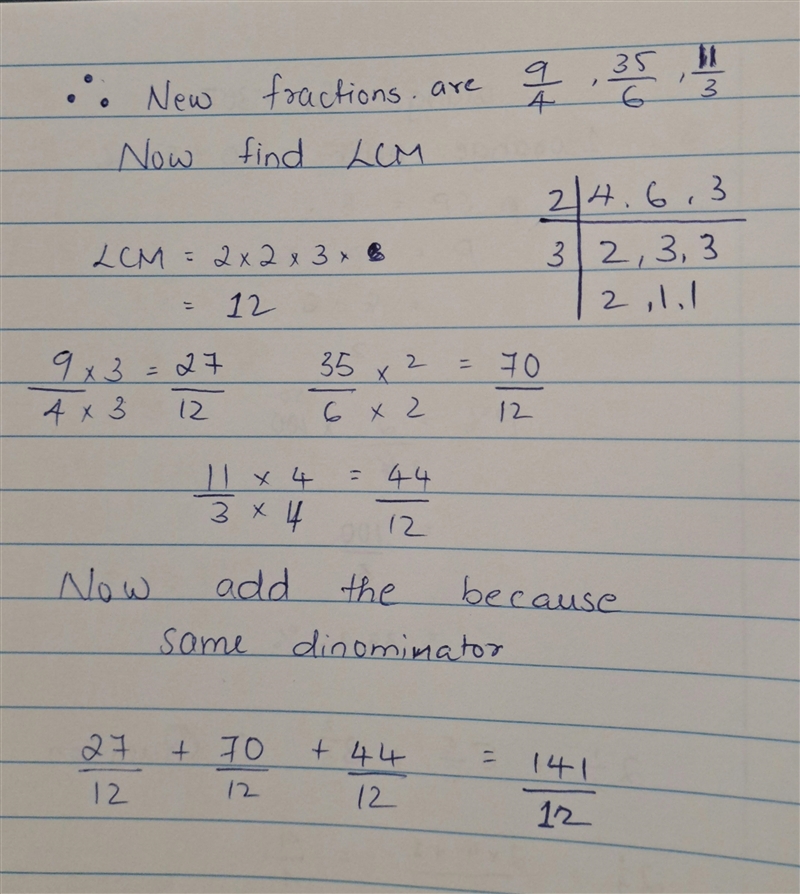 ∴ New fractions. are 9/4 , 35/6 , 11/3
Now find LCM
2 | 4, 6, 3
3 | 2, 3, 3
2, 1, 1
LCM = 2 x 2 x 3 x
= 12
9 x 3 / 4 x 3 = 27/12    35 x 2 / 6 x 2 = 70/12
11 x 4 / 3 x 4 = 44/12
Now add the because
same dinominator
27/12 + 70/12 + 44/12 = 141/12